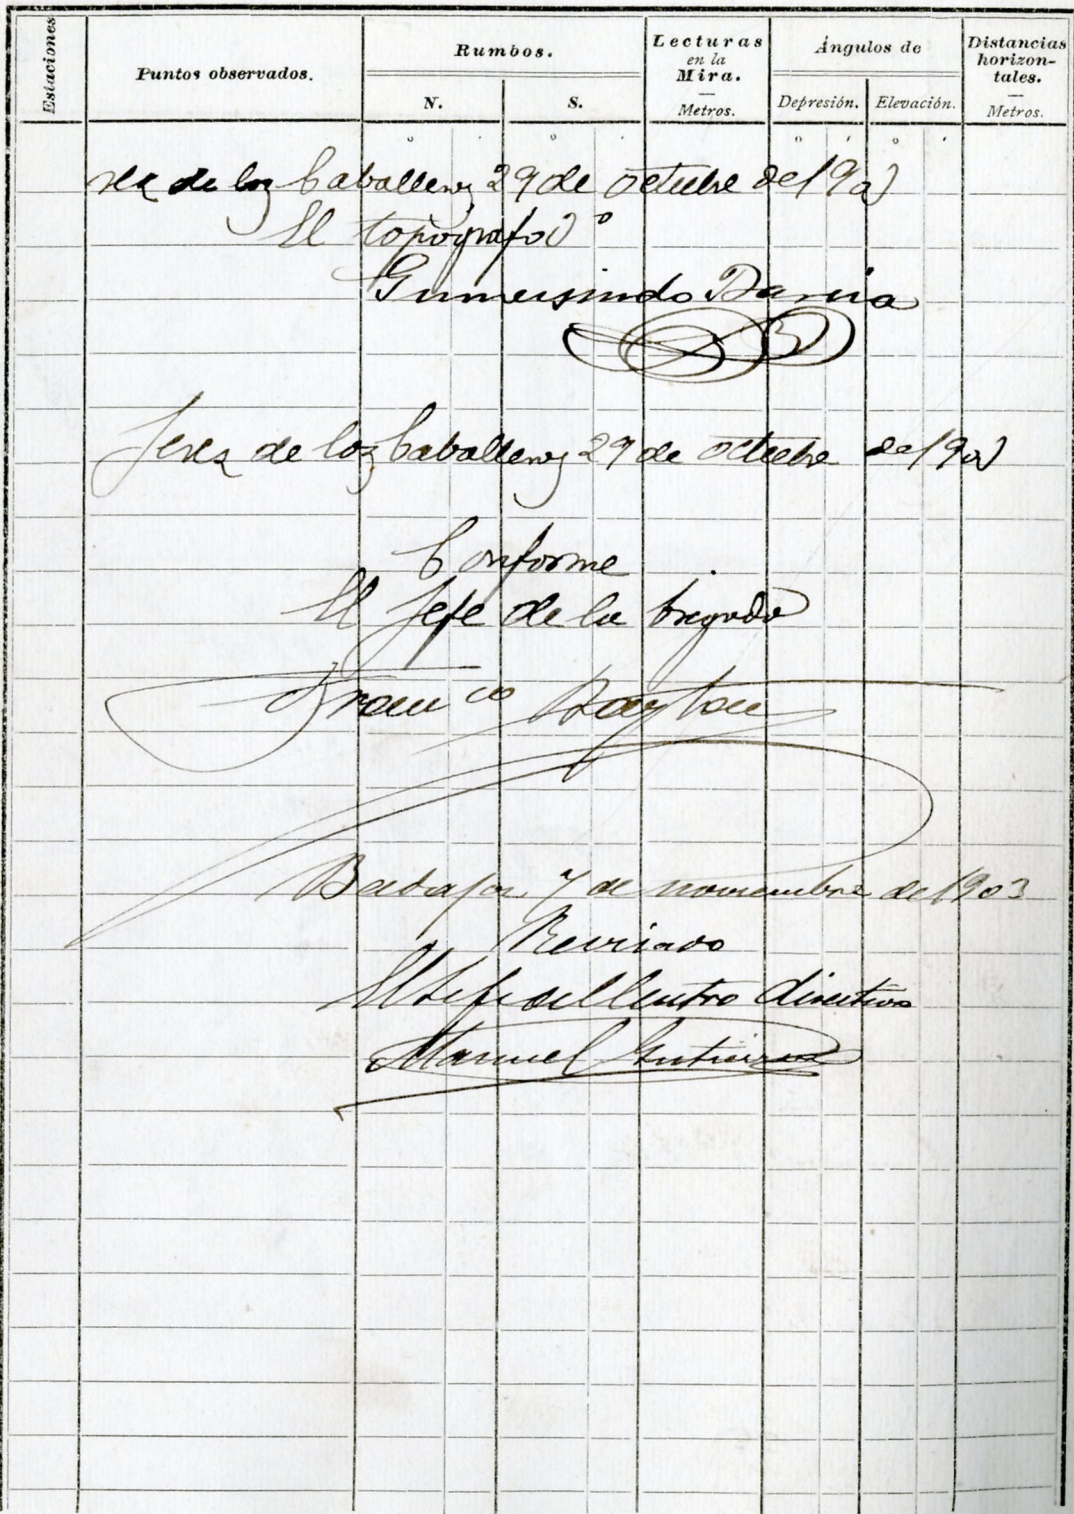 Estaciones
Puntos observados.
Rumbos.
N.
S.
Lecturas
en la
Mira.
Metros.
Ángulos de
Depresión.
Elevación.
Distancias
horizon-
tales.
Metros.
de los Caballeros 29 de octubre de
El topógrafo
Gumersindo
Jerez de los Caballeros 29 de octubre de
Conforme
El Jefe de la brigada
Badajoz 7 de noviembre de 1903
Revisado
El Jefe del Centro directivo
Manuel Gutierrez